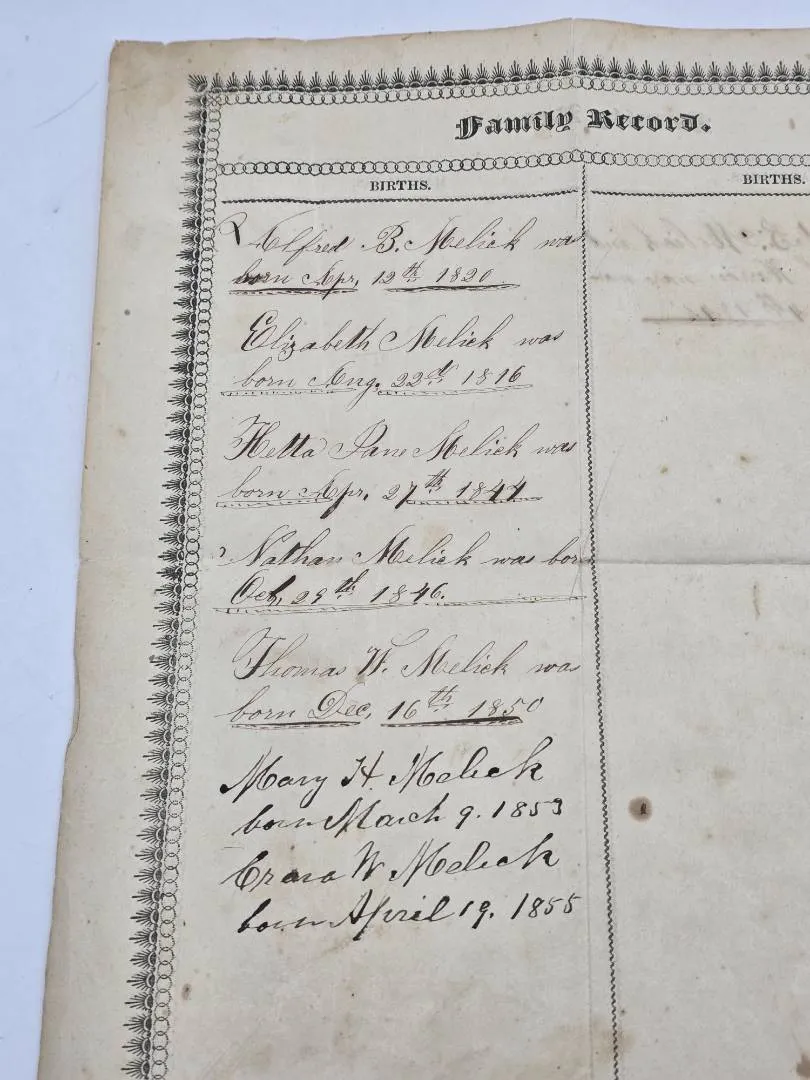 Family Record.
BIRTHS.
BIRTHS.
Alfred B. Melick was
born Apr. 12th 1820
Elizabeth Melick was
born Aug. 22nd 1816
Hetta Jane Melick was
born Apr. 27th 1844
Nathan Melick was born
Oct, 29th 1846.
Thomas W. Melick was
born Dec, 16th 1850
Mary H. Melick
born March 9. 1853
W Melick
born April 19. 1855